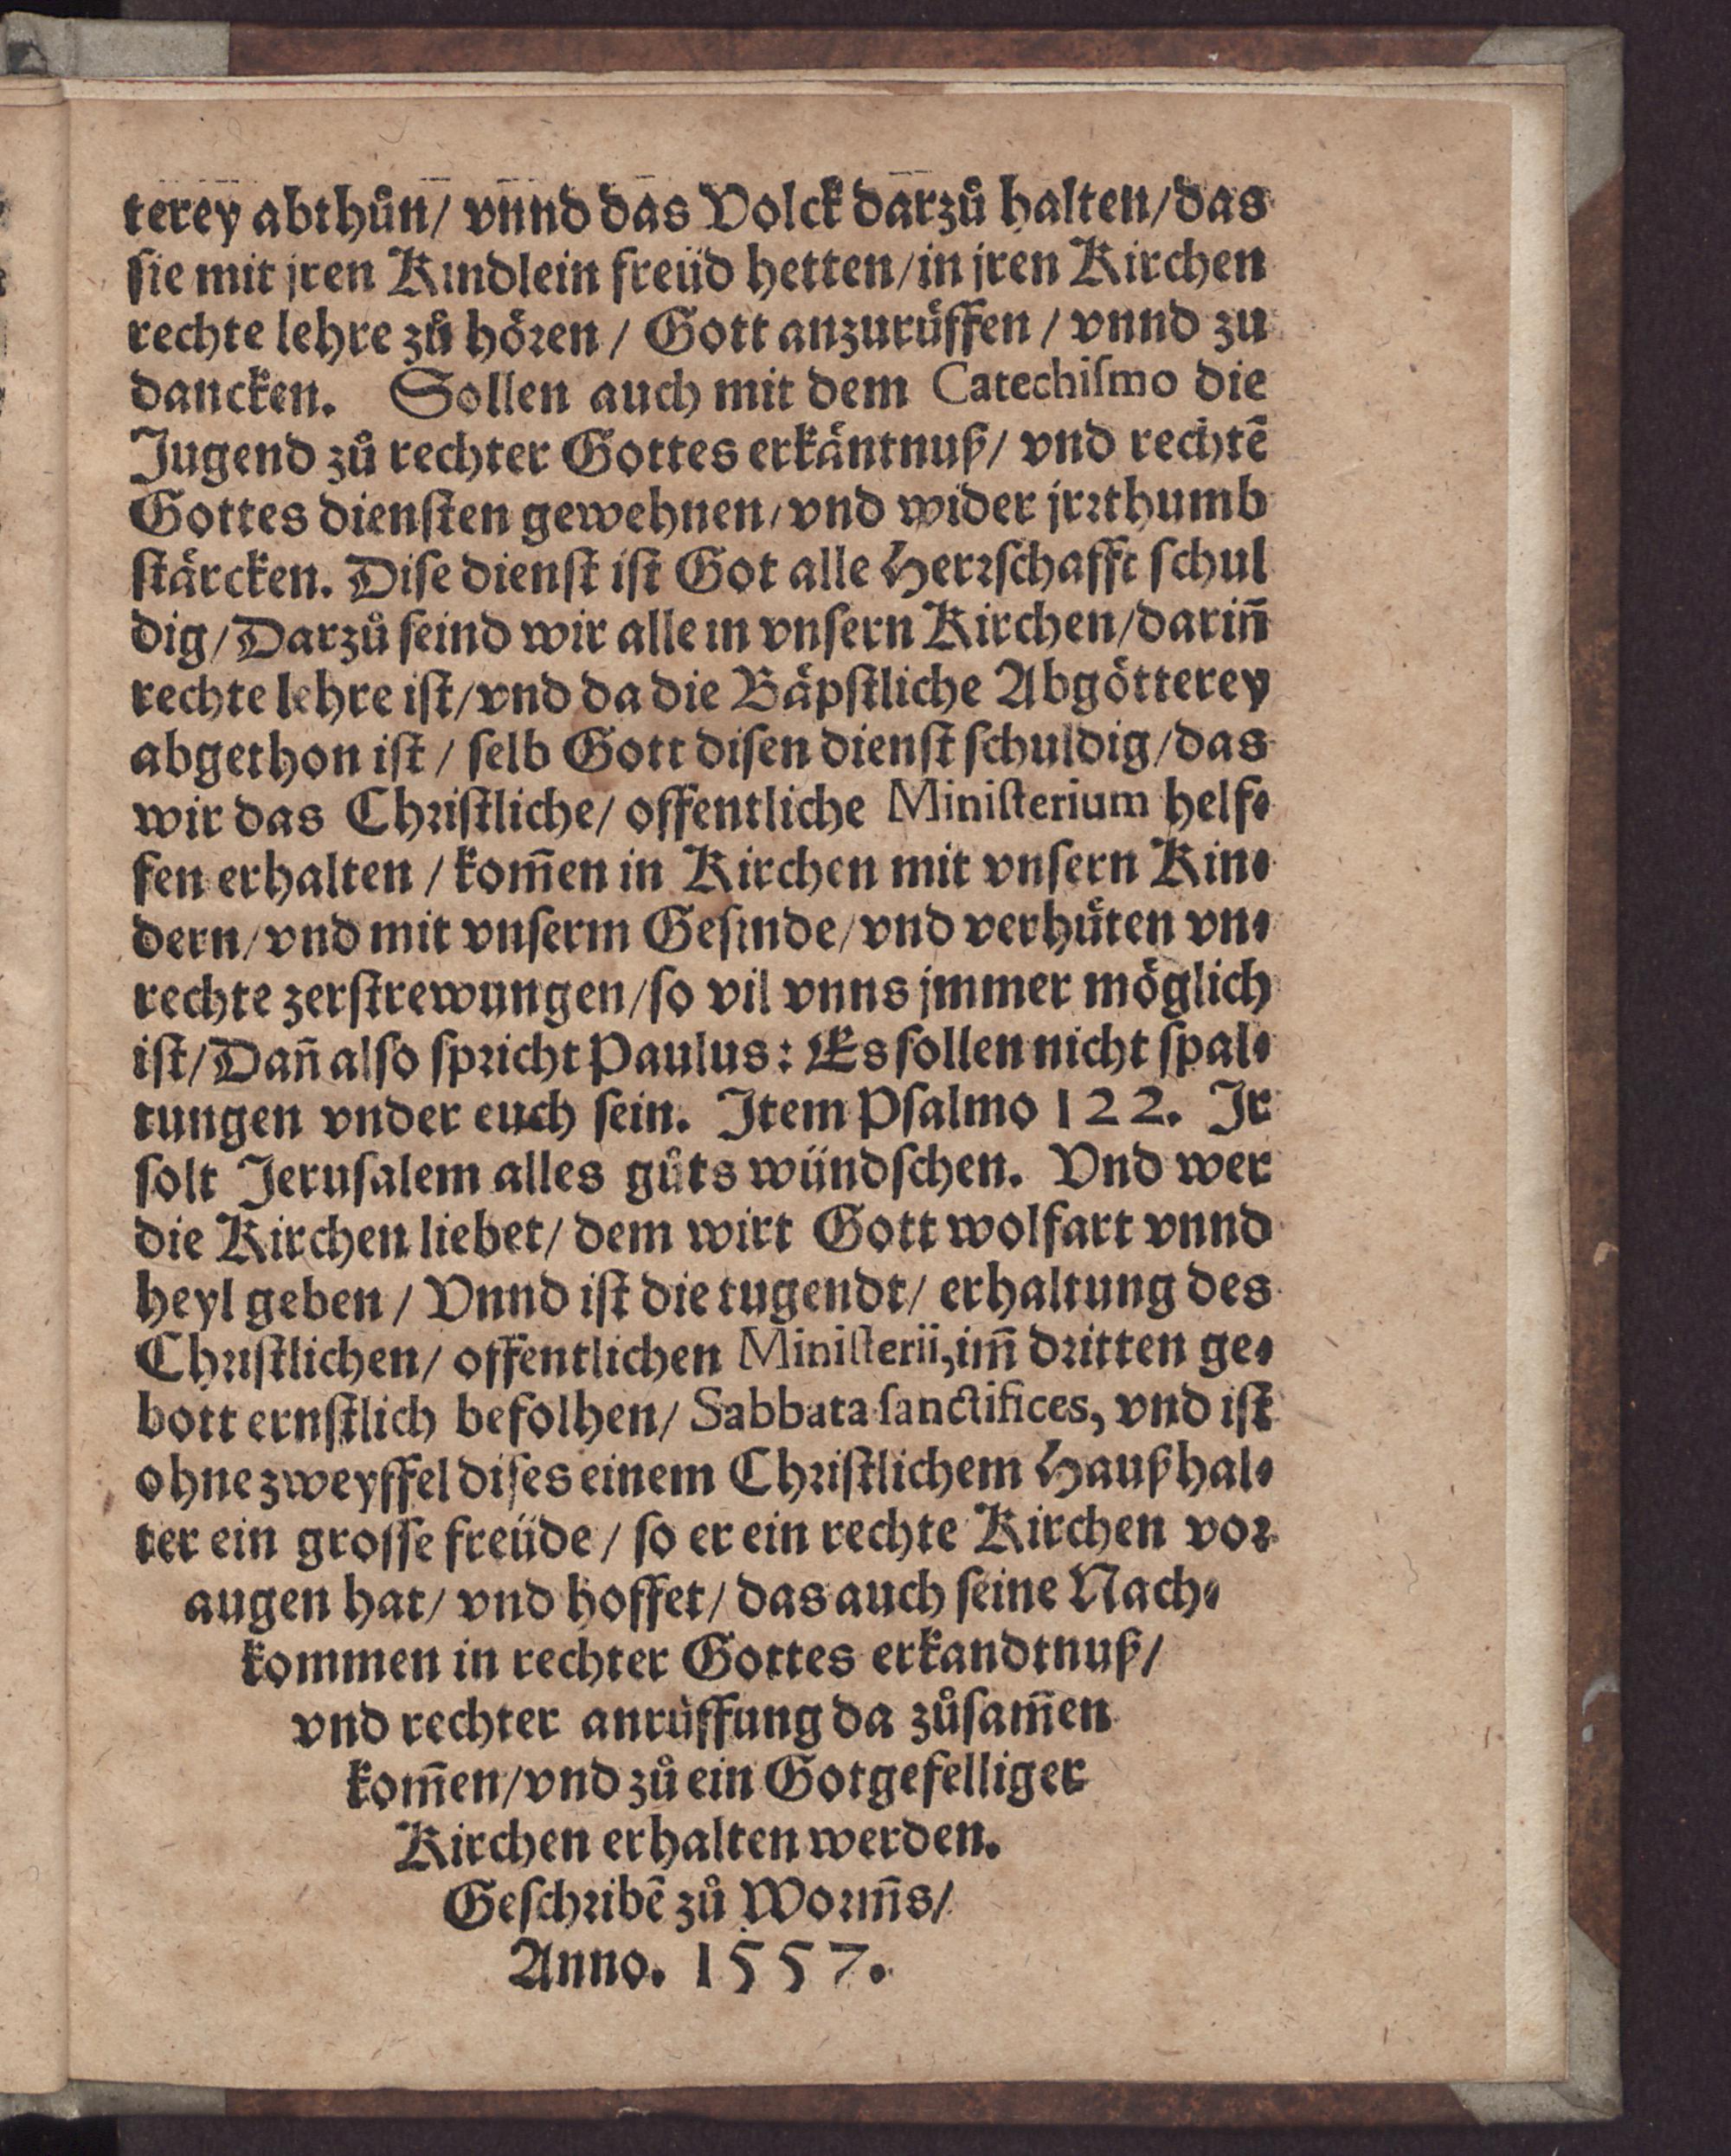 terey abthůn/ vnnd das Volck darzů halten/das
sie mit jren Kindlein freüd hetten/in jren Kirchen
rechte lehre zů hören/ Gott anzurüffen/ vnnd zu
dancken. Sollen auch mit dem Catechiſmo die
Jugend zů rechter Gottes erkäntnuß/ vnd rechtẽ
Gottes dienſten gewehnen/vnd wider jrrthumb
ſtärcken. Diſe dienſt iſt Got alle Herrſchafft ſchul
dig/Darzů ſeind wir alle in vnſern Kirchen/darin̄
rechte lehre iſt/vnd da die Bäpſtliche Abgötterey
abgethon iſt/ ſelb Gott diſen dienſt ſchuldig/das
wir das Chriſtliche/ offentliche Miniſterium helf⸗
fen erhalten/kom̄en in Kirchen mit vnſern Kin⸗
dern/vnd mit vnſerm Geſinde/vnd verhüten vn⸗
rechte zerſtrewungen/ſo vil vnns jmmer möglich
iſt/Dan̄ alſo ſpricht Paulus: Es ſollen nicht ſpal⸗
tungen vnder euch ſein. Item Pſalmo 122. Jr
ſolt Jeruſalem alles gůts wündſchen. Vnd wer
die Kirchen liebet/ dem wirt Gott wolfart vnnd
heyl geben/ Vnnd iſt die tugendt/ erhaltung des
Chriſtlichen/ offentlichen Miniſterii, im̄ dritten ge⸗
bott ernſtlich befolhen/ Sabbata ſanctifices, vnd iſt
ohne zweyffel diſes einem Chriſtlichem Haußhal⸗
ter ein groſſe freüde/ ſo er ein rechte Kirchen vor
augen hat/ vnd hoffet/ das auch ſeine Nach⸗
kommen in rechter Gottes erkandtnuß/
vnd rechter anrüffung da zůſam̄en
kom̄en/vnd zů ein Gotgefelliger
Kirchen erhalten werden.
Geſchribẽ zů Worm̄s/
Anno. 1557.